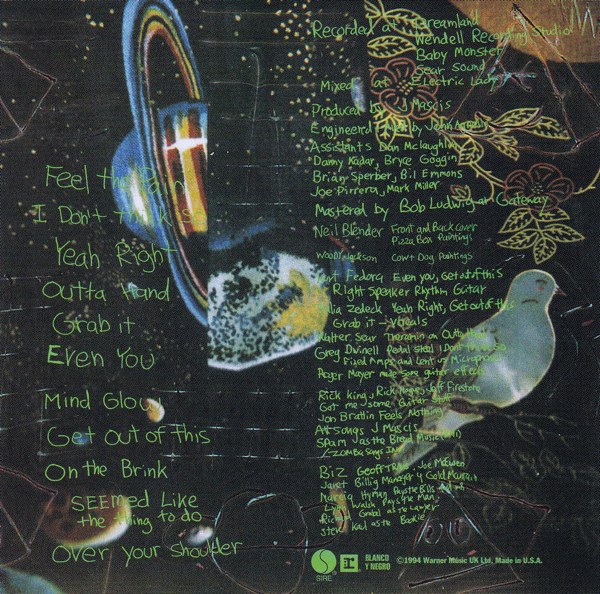 Feel the Pain
I Don't think so
Yeah Right
Outta Hand
Grab it
Even You
Mind Glow
Get out of this
On the Brink
SEEMED Like
the thing to do
Over your shoulder
Recorded at Dreamland
Wendell Recording Studio
Baby Monster
Sear Sound
Mixed at Electric Lady
Produced by J Mascis
Engineered by John Agnello
Assistants Dan McLaughlin
Danny Kadar, Bryce Goggin
Brian Sperber, Bil Emmons
Joe Pirrera, Mark Miller
Mastered by Bob Ludwig at Gateway
Neil Blender Front and Back cover
Pizza Box Paintings
Woody Jackson Cow + Dog Paintings
Kurt Fedora Even you, Get out of this
Right Speaker Rhythm Guitar
Thalia Zedeck Yeah Right, Get out of this
Grab it - vocals
Walter Sear Theramin on Outta Hand
Greg Dwinell Pedal Steel I Don't Think So
Fixed Amps and Lent us Microphones
Roger Mayer made some guitar effects
Rick King, Rick Jeff Firestone
Got me some Guitar Stuff
Jon Brattin Feels Nothing
All songs J Mascis
Spam as the Bread Music (BMI)
Zomba Songs Inc
Biz Geoff Trump, Joe McEwen
Janet Billig Manager y Gold Mountain
Marcia Hyman Pays the Bills and
Linda Walsh Pays the Man
Richard Grabel as the Lawyer
Steve Kaul as the Bookie
SIRE
BLANCO
Y NEGRO
©1994 Warner Music UK Ltd. Made in U.S.A.